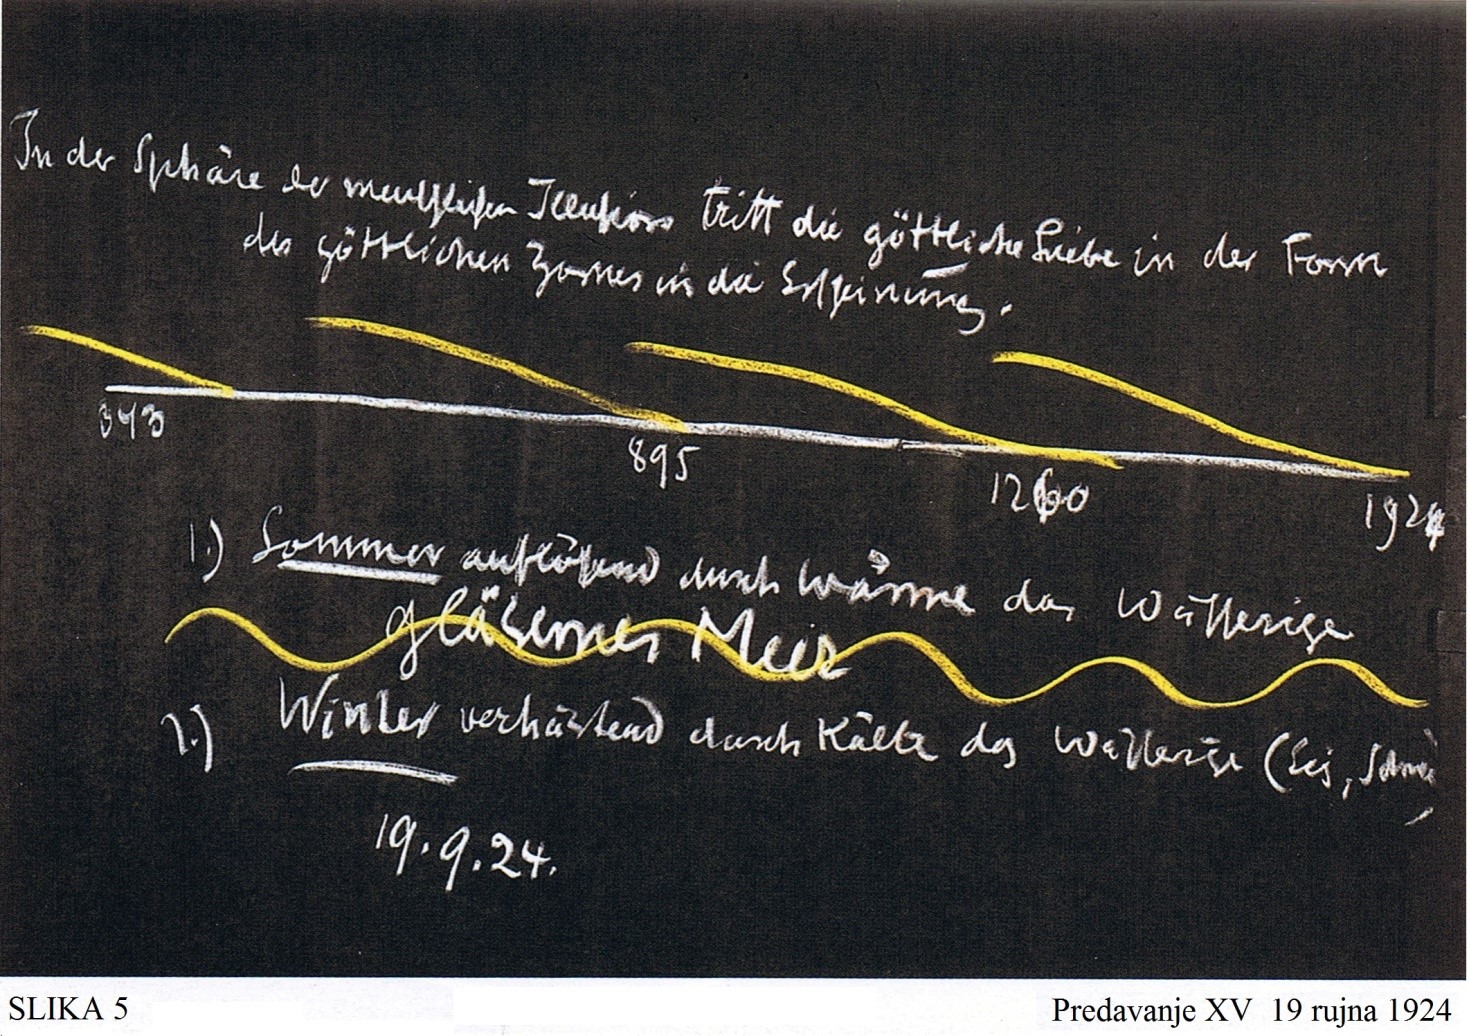 In der Sphäre der menschlichen Illusion tritt die göttliche Liebe in der Form
des göttlichen Zornes in die Erscheinung.
343
895
1260
1924
1.) Sommer auflösend durch Wärme das Wässerige
gläsernes Meer
2.) Winter verhärtend durch Kälte das Wässerige (Eis, Schnee)
19.9.24.
SLIKA 5
Predavanje XV 19 rujna 1924